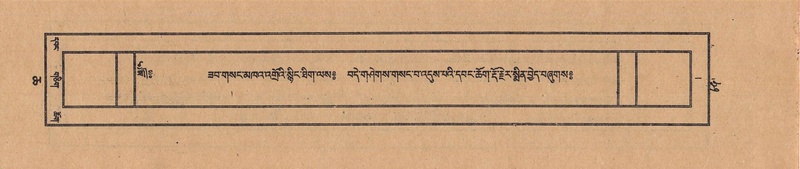 ཟབ་གསང་མཁའ་འགྲོའི་སྙིང་ཐིག་ལས༔ བདེ་གཤེགས་གསང་བ་འདུས་པའི་དབང་ཆོག་རྡོ་རྗེར་སྨིན་བྱེད་བཞུགས༔